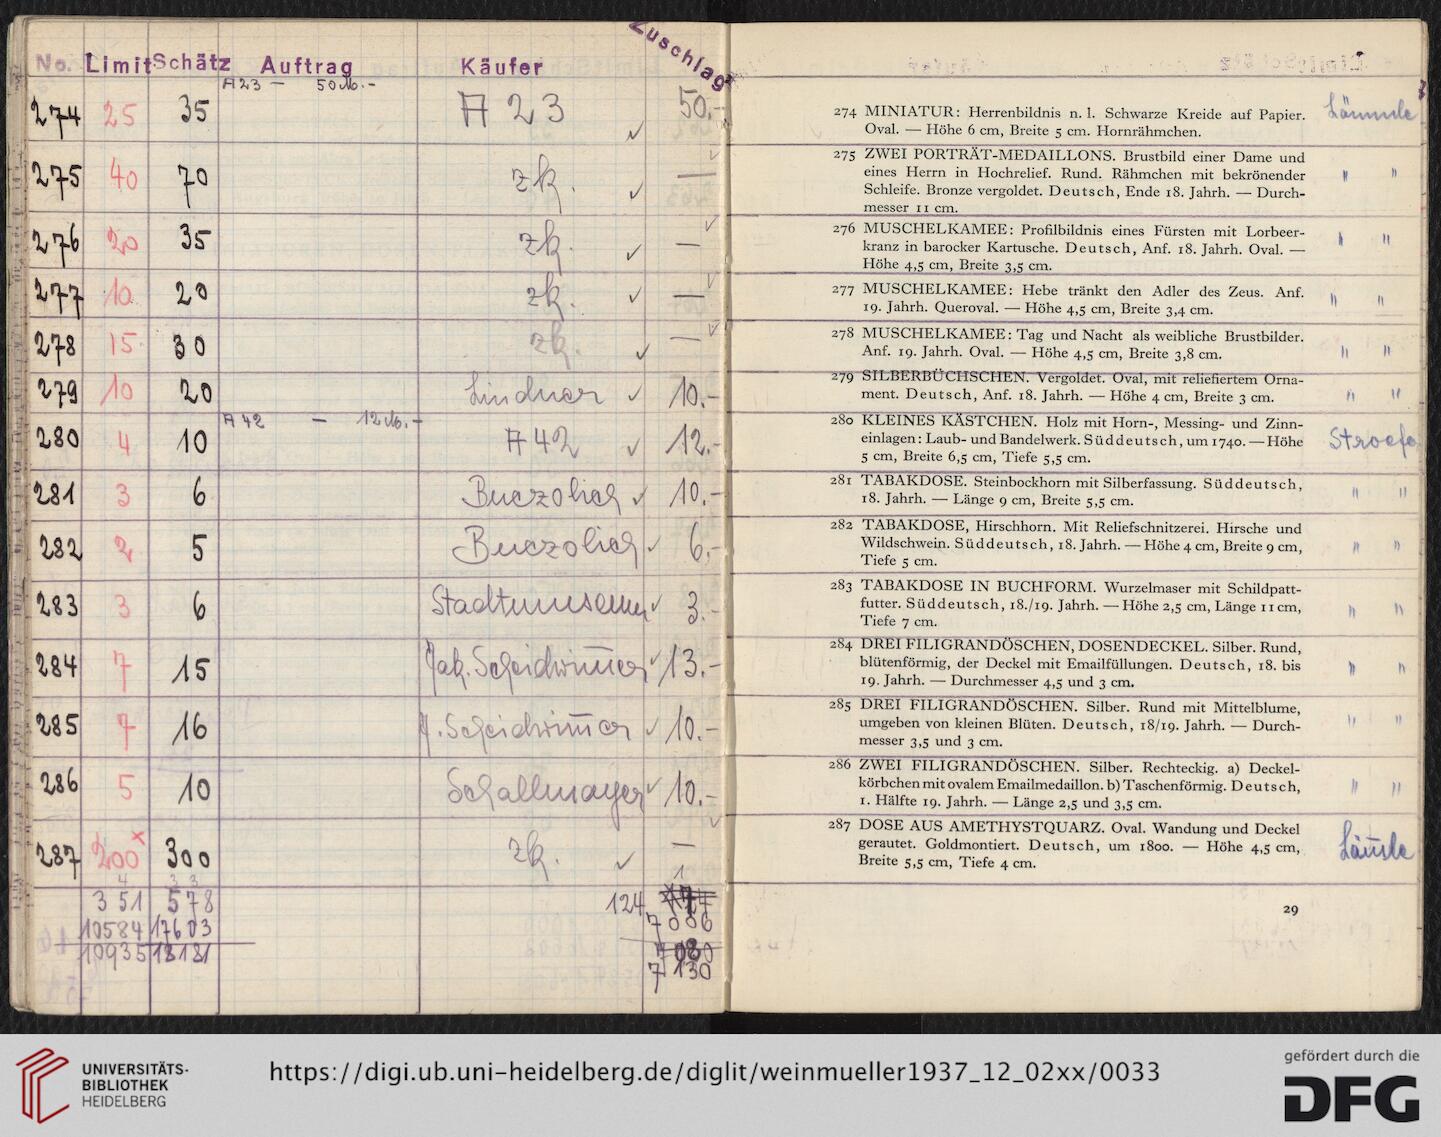 No. Limit Schätz Auftrag Käufer Zuschlag
A 23 — 50 M.-
274 25 35 A 23 ✓ 50.-
275 40 70 zk. ✓ —
276 20 35 zk. ✓ —
277 10 20 zk. ✓ —
278 15 30 zk. ✓ —
279 10 20 Lindner ✓ 10.-
A 42 — 12 M.-
280 4 10 A 42 ✓ 12.-
281 3 6 ✓ 10.-
282 2 5 ✓ 6.-
283 3 6 Stadtmuseum ✓ 3.-
284 7 15 Jak. Scheidwimmer ✓ 13.-
285 7 16 J. Scheidwimmer ✓ 10.-
286 5 10 Schallmayer ✓ 10.-
287 200 x 300 zk. ✓ —
351 578 124
10584 17603 7006
10935 18181
7130
274 MINIATUR: Herrenbildnis n. l. Schwarze Kreide auf Papier.
Oval. — Höhe 6 cm, Breite 5 cm. Hornrähmchen.
275 ZWEI PORTRÄT-MEDAILLONS. Brustbild einer Dame und " "
eines Herrn in Hochrelief. Rund. Rähmchen mit bekrönender
Schleife. Bronze vergoldet. Deutsch, Ende 18. Jahrh. — Durch-
messer 11 cm.
276 MUSCHELKAMEE: Profilbildnis eines Fürsten mit Lorbeer- " "
kranz in barocker Kartusche. Deutsch, Anf. 18. Jahrh. Oval. —
Höhe 4,5 cm, Breite 3,5 cm.
277 MUSCHELKAMEE: Hebe tränkt den Adler des Zeus. Anf. " "
19. Jahrh. Queroval. — Höhe 4,5 cm, Breite 3,4 cm.
278 MUSCHELKAMEE: Tag und Nacht als weibliche Brustbilder.
Anf. 19. Jahrh. Oval. — Höhe 4,5 cm, Breite 3,8 cm. " "
279 SILBERBÜCHSCHEN. Vergoldet. Oval, mit reliefiertem Orna-
ment. Deutsch, Anf. 18. Jahrh. — Höhe 4 cm, Breite 3 cm. " "
280 KLEINES KÄSTCHEN. Holz mit Horn-, Messing- und Zinn-
einlagen: Laub- und Bandelwerk. Süddeutsch, um 1740. — Höhe
5 cm, Breite 6,5 cm, Tiefe 5,5 cm.
281 TABAKDOSE. Steinbockhorn mit Silberfassung. Süddeutsch, " "
18. Jahrh. — Länge 9 cm, Breite 5,5 cm.
282 TABAKDOSE, Hirschhorn. Mit Reliefschnitzerei. Hirsche und
Wildschwein. Süddeutsch, 18. Jahrh. — Höhe 4 cm, Breite 9 cm, " "
Tiefe 5 cm.
283 TABAKDOSE IN BUCHFORM. Wurzelmaser mit Schildpatt-
futter. Süddeutsch, 18./19. Jahrh. — Höhe 2,5 cm, Länge 11 cm, " "
Tiefe 7 cm.
284 DREI FILIGRANDÖSCHEN, DOSENDECKEL. Silber. Rund,
blütenförmig, der Deckel mit Emailfüllungen. Deutsch, 18. bis " "
19. Jahrh. — Durchmesser 4,5 und 3 cm.
285 DREI FILIGRANDÖSCHEN. Silber. Rund mit Mittelblume,
umgeben von kleinen Blüten. Deutsch, 18/19. Jahrh. — Durch- " "
messer 3,5 und 3 cm.
286 ZWEI FILIGRANDÖSCHEN. Silber. Rechteckig. a) Deckel-
körbchen mit ovalem Emailmedaillon. b) Taschenförmig. Deutsch, " "
1. Hälfte 19. Jahrh. — Länge 2,5 und 3,5 cm.
287 DOSE AUS AMETHYSTQUARZ. Oval. Wandung und Deckel
gerautet. Goldmontiert. Deutsch, um 1800. — Höhe 4,5 cm,
Breite 5,5 cm, Tiefe 4 cm.
29
UNIVERSITÄTS-
BIBLIOTHEK
HEIDELBERG
https://digi.ub.uni-heidelberg.de/diglit/weinmueller1937_12_02xx/0033
gefördert durch die
DFG